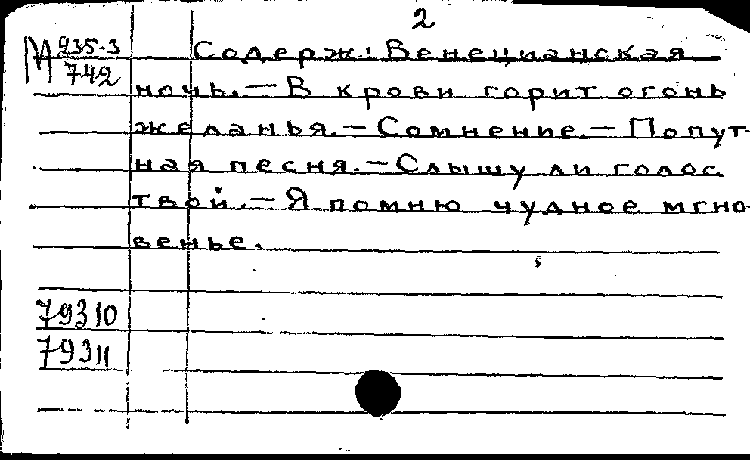 2
М 935-3
742
Содерж: Венецианская
ночь.—В крови горит огонь
желанья.—Сомнение.—Попут-
ная песня.—Слышу ли голос
твой.—Я помню чудное мгно-
венье.
79310
79311